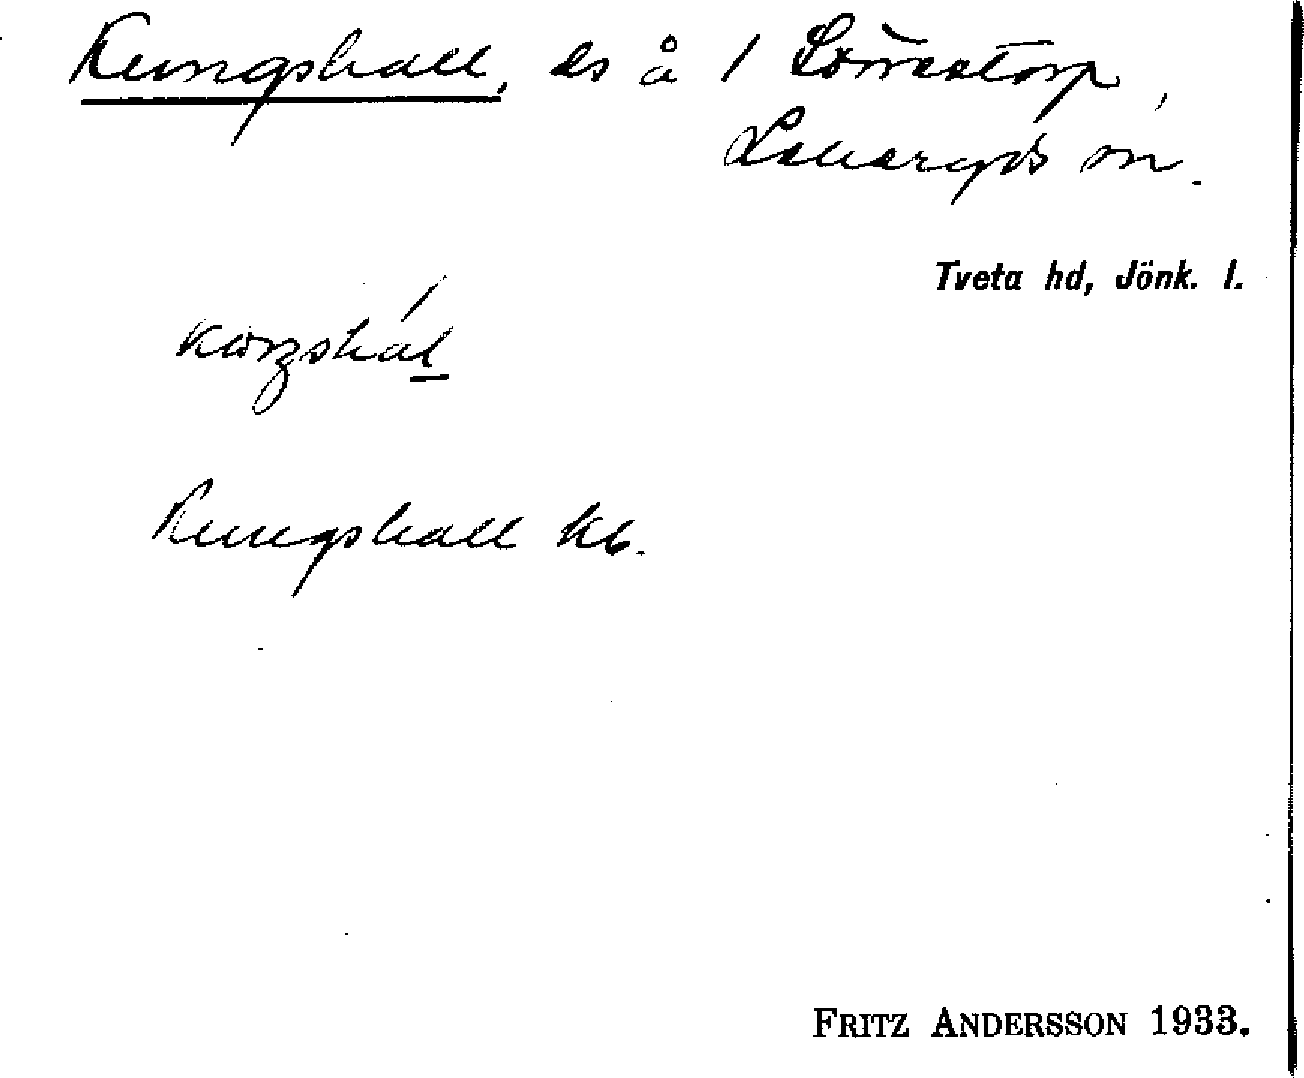 Kungshall, ls å 1 Lörrestorp,
Lekeryds sn.
Tveta hd, Jönk. l.
Kungshall kb.
FRITZ ANDERSSON 1933.